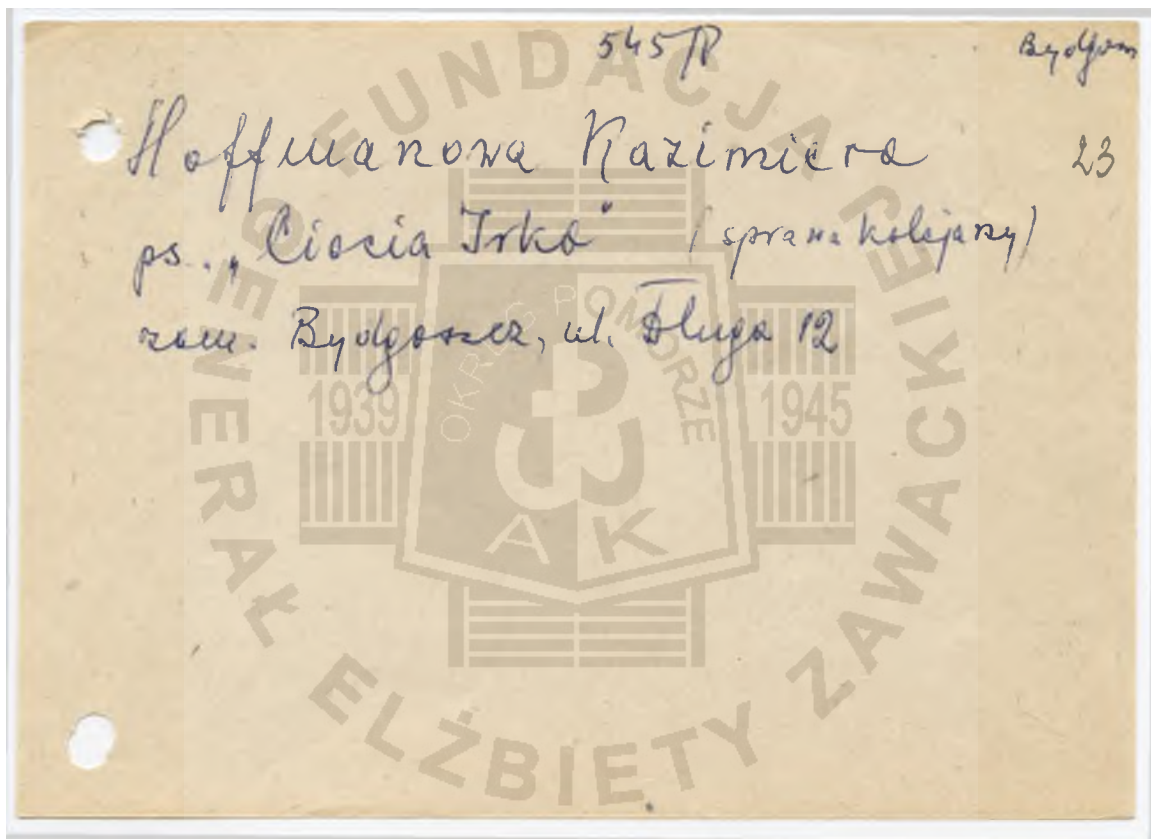 545/P Bydgosz
Hoffmanowa Kazimiera 23
ps. „Ciocia Irka" (sprawa kolejarzy)
zam. Bydgoszcz, ul. Długa 12
FUNDACJA GENERAŁ ELŻBIETY ZAWACKIEJ
OKRĘG POMORZE
1939 1945
AK